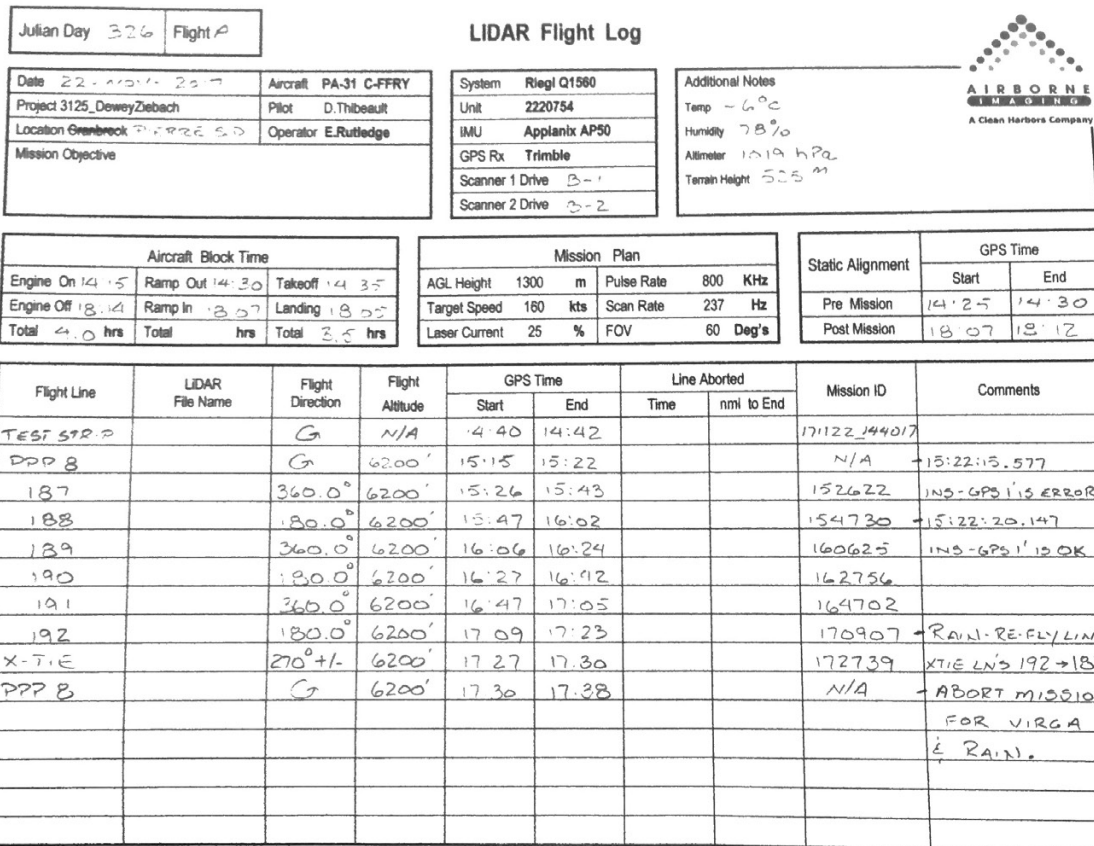 Julian Day 326 Flight A
LIDAR Flight Log
AIRBORNE
IMAGING
A Clean Harbors Company
Date 22-Nov-2017 Aircraft PA-31 C-FFRY
Project 3125_DeweyZiebach Pilot D.Thibeault
Location Cranbrook PIERRE SD Operator E.Rutledge
Mission Objective
System Riegl Q1560
Unit 2220754
IMU Applanix AP50
GPS Rx Trimble
Scanner 1 Drive B-1
Scanner 2 Drive B-2
Additional Notes
Temp ~6°C
Humidity 78%
Altimeter 1019 hPa
Terrain Height 525 m
Aircraft Block Time
Engine On 14:15 Ramp Out 14:30 Takeoff 14 35
Engine Off 18:14 Ramp In 18 07 Landing 18 05
Total 4.0 hrs Total hrs Total 3.5 hrs
Mission Plan
AGL Height 1300 m Pulse Rate 800 KHz
Target Speed 160 kts Scan Rate 237 Hz
Laser Current 25 % FOV 60 Deg's
Static Alignment GPS Time
Start End
Pre Mission 14:25 14:30
Post Mission 18:07 18:12
Flight Line LiDAR File Name Flight Direction Flight Altitude GPS Time Start End Line Aborted Time nmi to End Mission ID Comments
TEST STRIP G N/A 14:40 14:42 171122_144017
PPP 8 G 6200' 15:15 15:22 N/A -15:22:15.577
187 360.0° 6200' 15:26 15:43 152622 INS-GPS 1 IS ERROR
188 180.0° 6200' 15:47 16:02 154730 -15:22:20.147
189 360.0° 6200' 16:06 16:24 160625 INS-GPS 1' IS OK
190 180.0° 6200' 16:27 16:42 162756
191 360.0° 6200' 16:47 17:05 164702
192 180.0° 6200' 17 09 17:23 170907 - RAIN-RE-FLY LIN
X-TIE 270° +/- 6200' 17 27 17.30 172739 XTIE LN'S 192→18
PPP 8 G 6200' 17 30 17.38 N/A - ABORT MISSIO
FOR VIRGA
& RAIN.